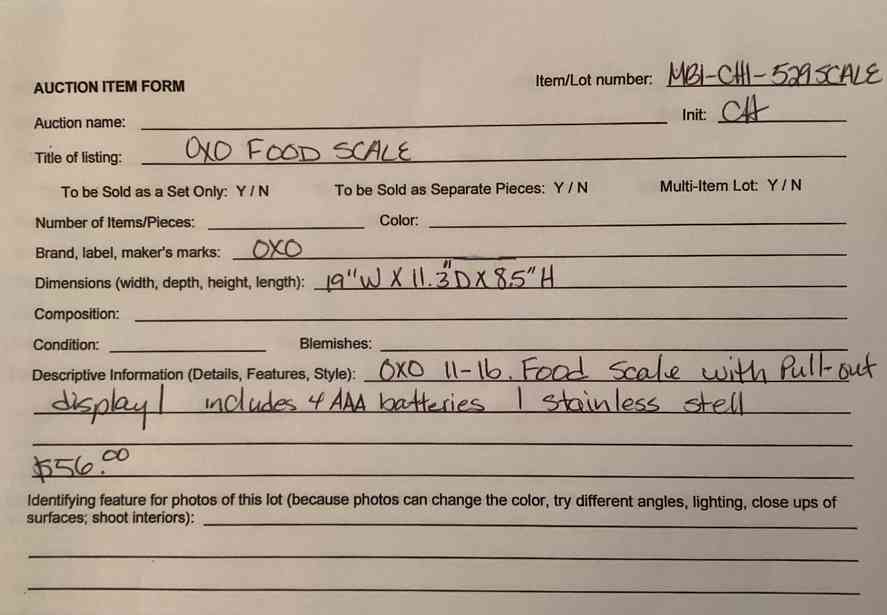 AUCTION ITEM FORM Item/Lot number: MB1-CH1-529SCALE
Auction name: Init: CH
Title of listing: OXO FOOD SCALE
To be Sold as a Set Only: Y / N To be Sold as Separate Pieces: Y / N Multi-Item Lot: Y / N
Number of Items/Pieces: Color:
Brand, label, maker's marks: OXO
Dimensions (width, depth, height, length): 19"W X 11.3"D X 8.5"H
Composition:
Condition: Blemishes:
Descriptive Information (Details, Features, Style): OXO 11-lb. Food Scale with Pull-out
display | includes 4 AAA batteries | stainless stell
$56.00
Identifying feature for photos of this lot (because photos can change the color, try different angles, lighting, close ups of
surfaces; shoot interiors):